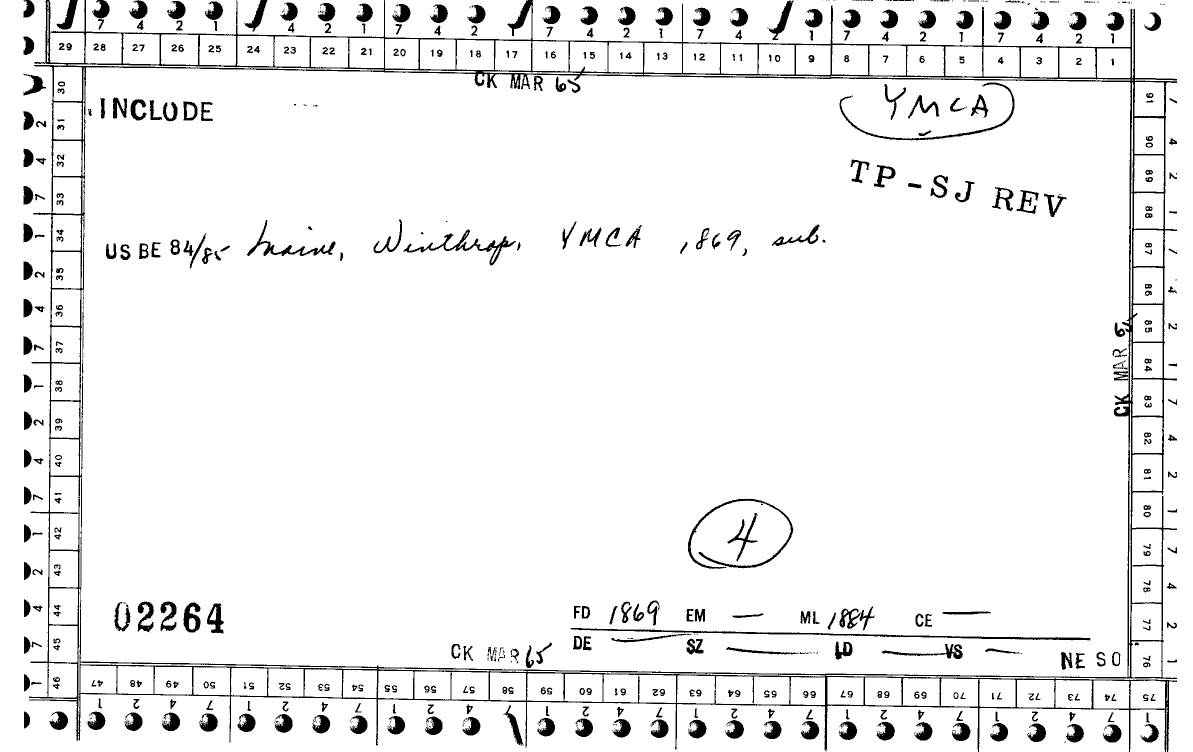 7 4 2 1 4 2 1 7 4 2 1 7 4 2 1 7 4 2 1 7 4 2 1 7 4 2 1
29 28 27 26 25 24 23 22 21 20 19 18 17 16 15 14 13 12 11 10 9 8 7 6 5 4 3 2 1
CK MAR 65
INCLUDE
YMCA
TP-SJ REV
US BE 84/85 Maine, Winthrop, YMCA 1869, sub.
CK MAR 65
4
02264
FD 1869 EM — ML 1884 CE —
DE — SZ — LD — VS —
CK MAR 65
NE SO
30 31 32 33 34 35 36 37 38 39 40 41 42 43 44 45 46
91 90 89 88 87 86 85 84 83 82 81 80 79 78 77 76
47 48 49 50 51 52 53 54 55 56 57 58 59 60 61 62 63 64 65 66 67 68 69 70 71 72 73 74 75